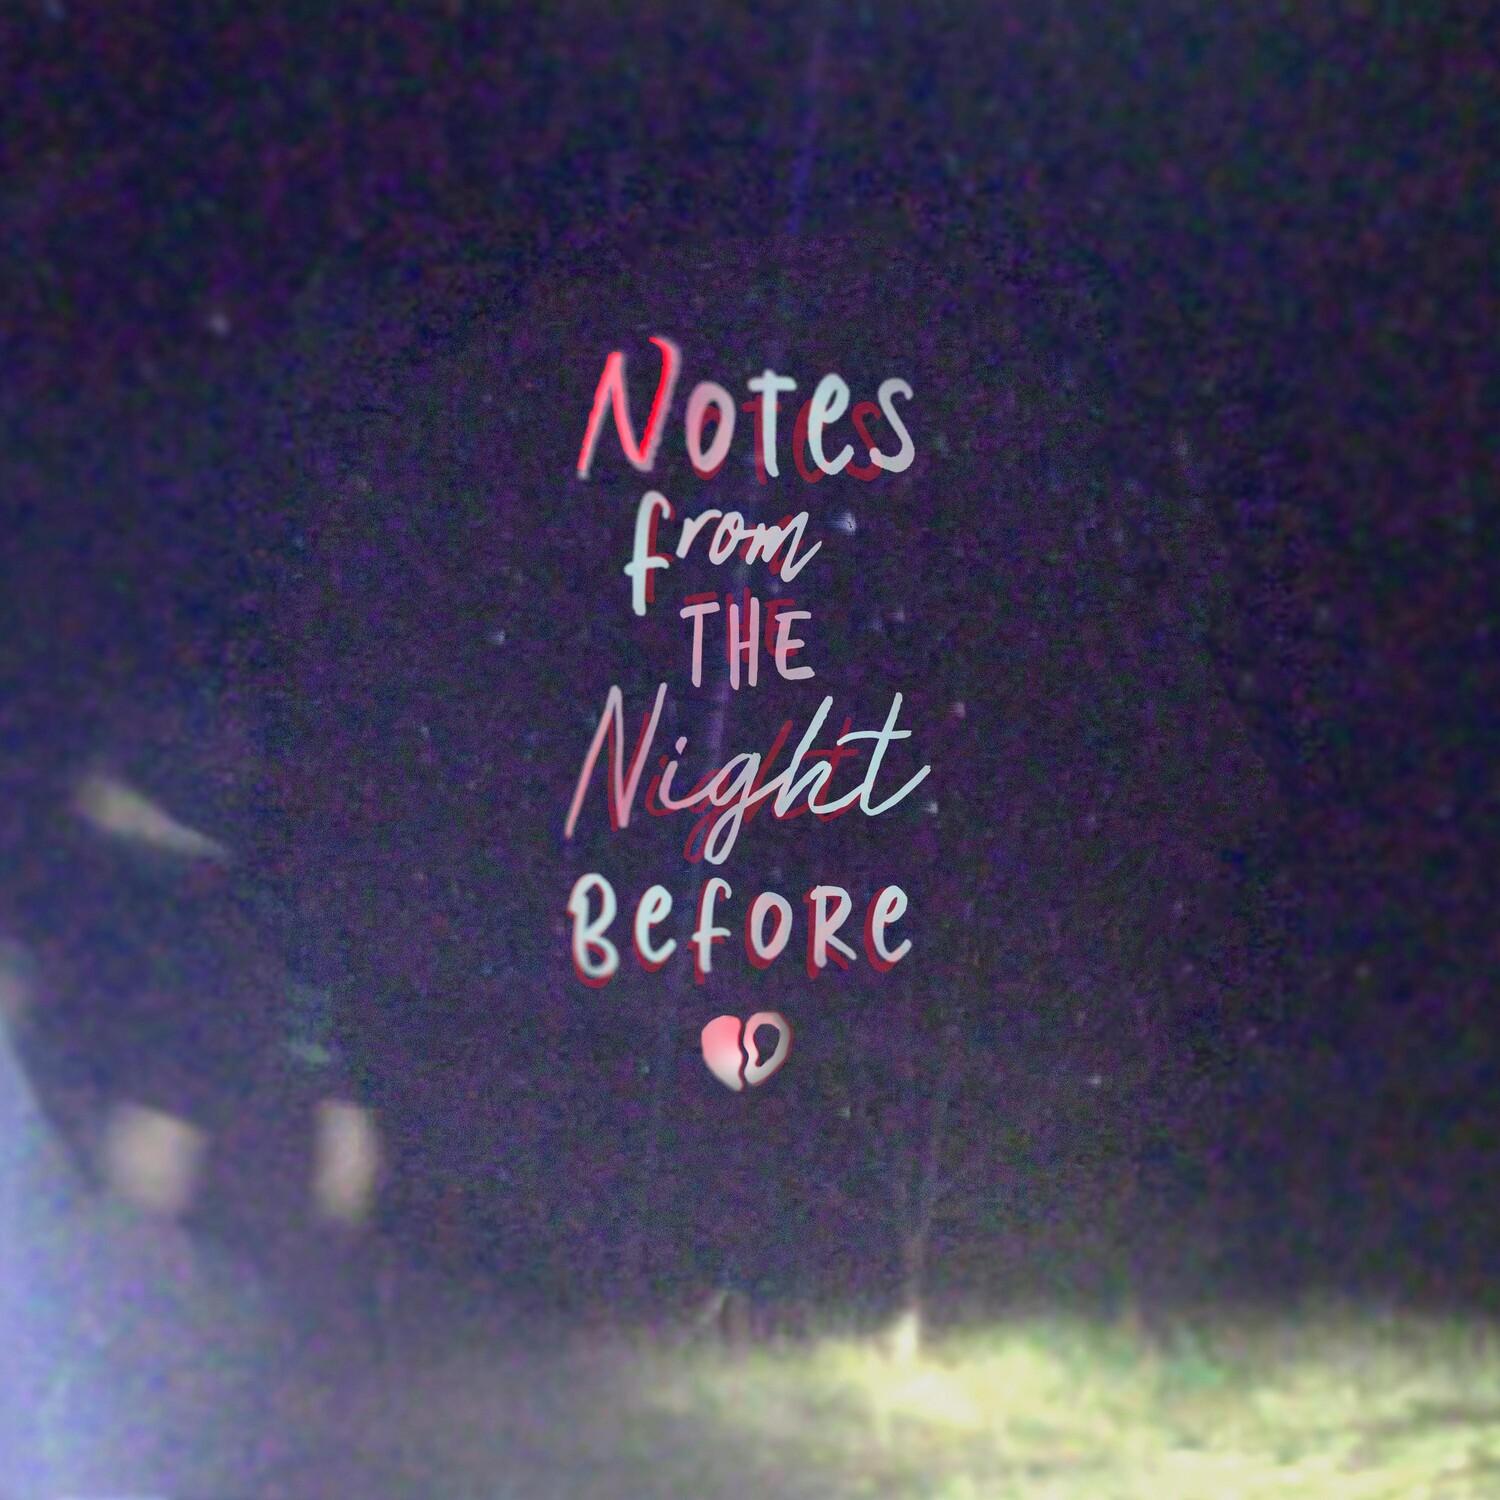 Notes
from
THE
Night
BEfORe